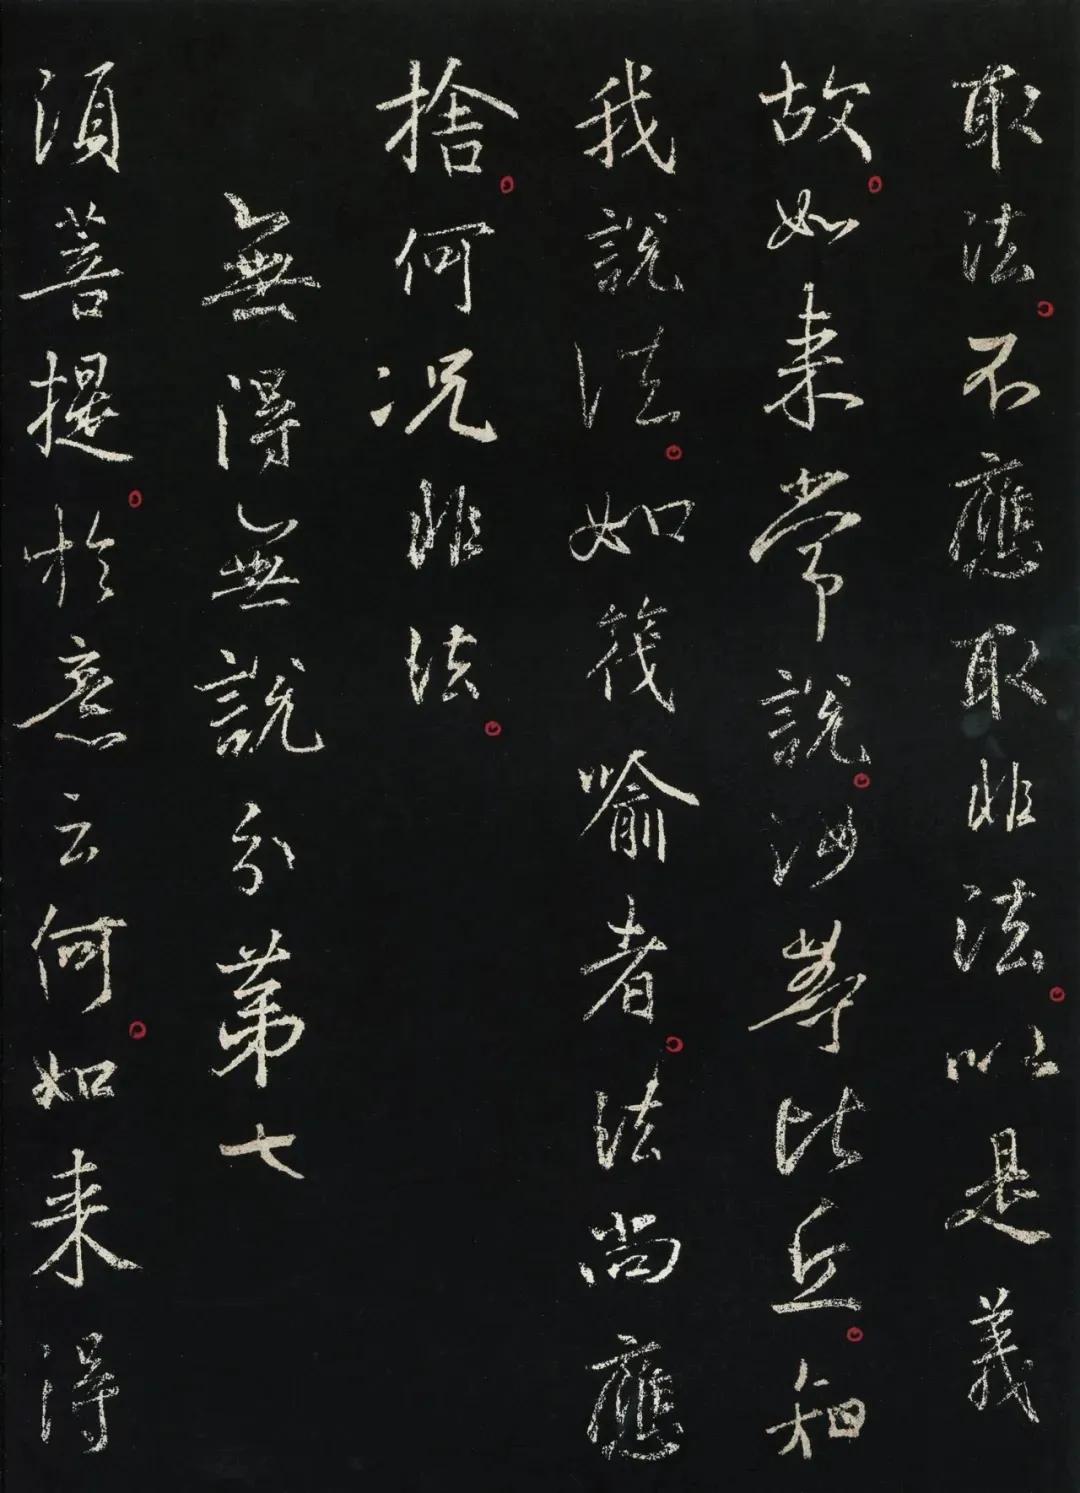 取法。不應取非法。以是義
故。如来常說。汝等比丘。知
我說法。如筏喻者。法尚應
捨。何况非法。
無得無說分第七
須菩提。於意云何。如来得